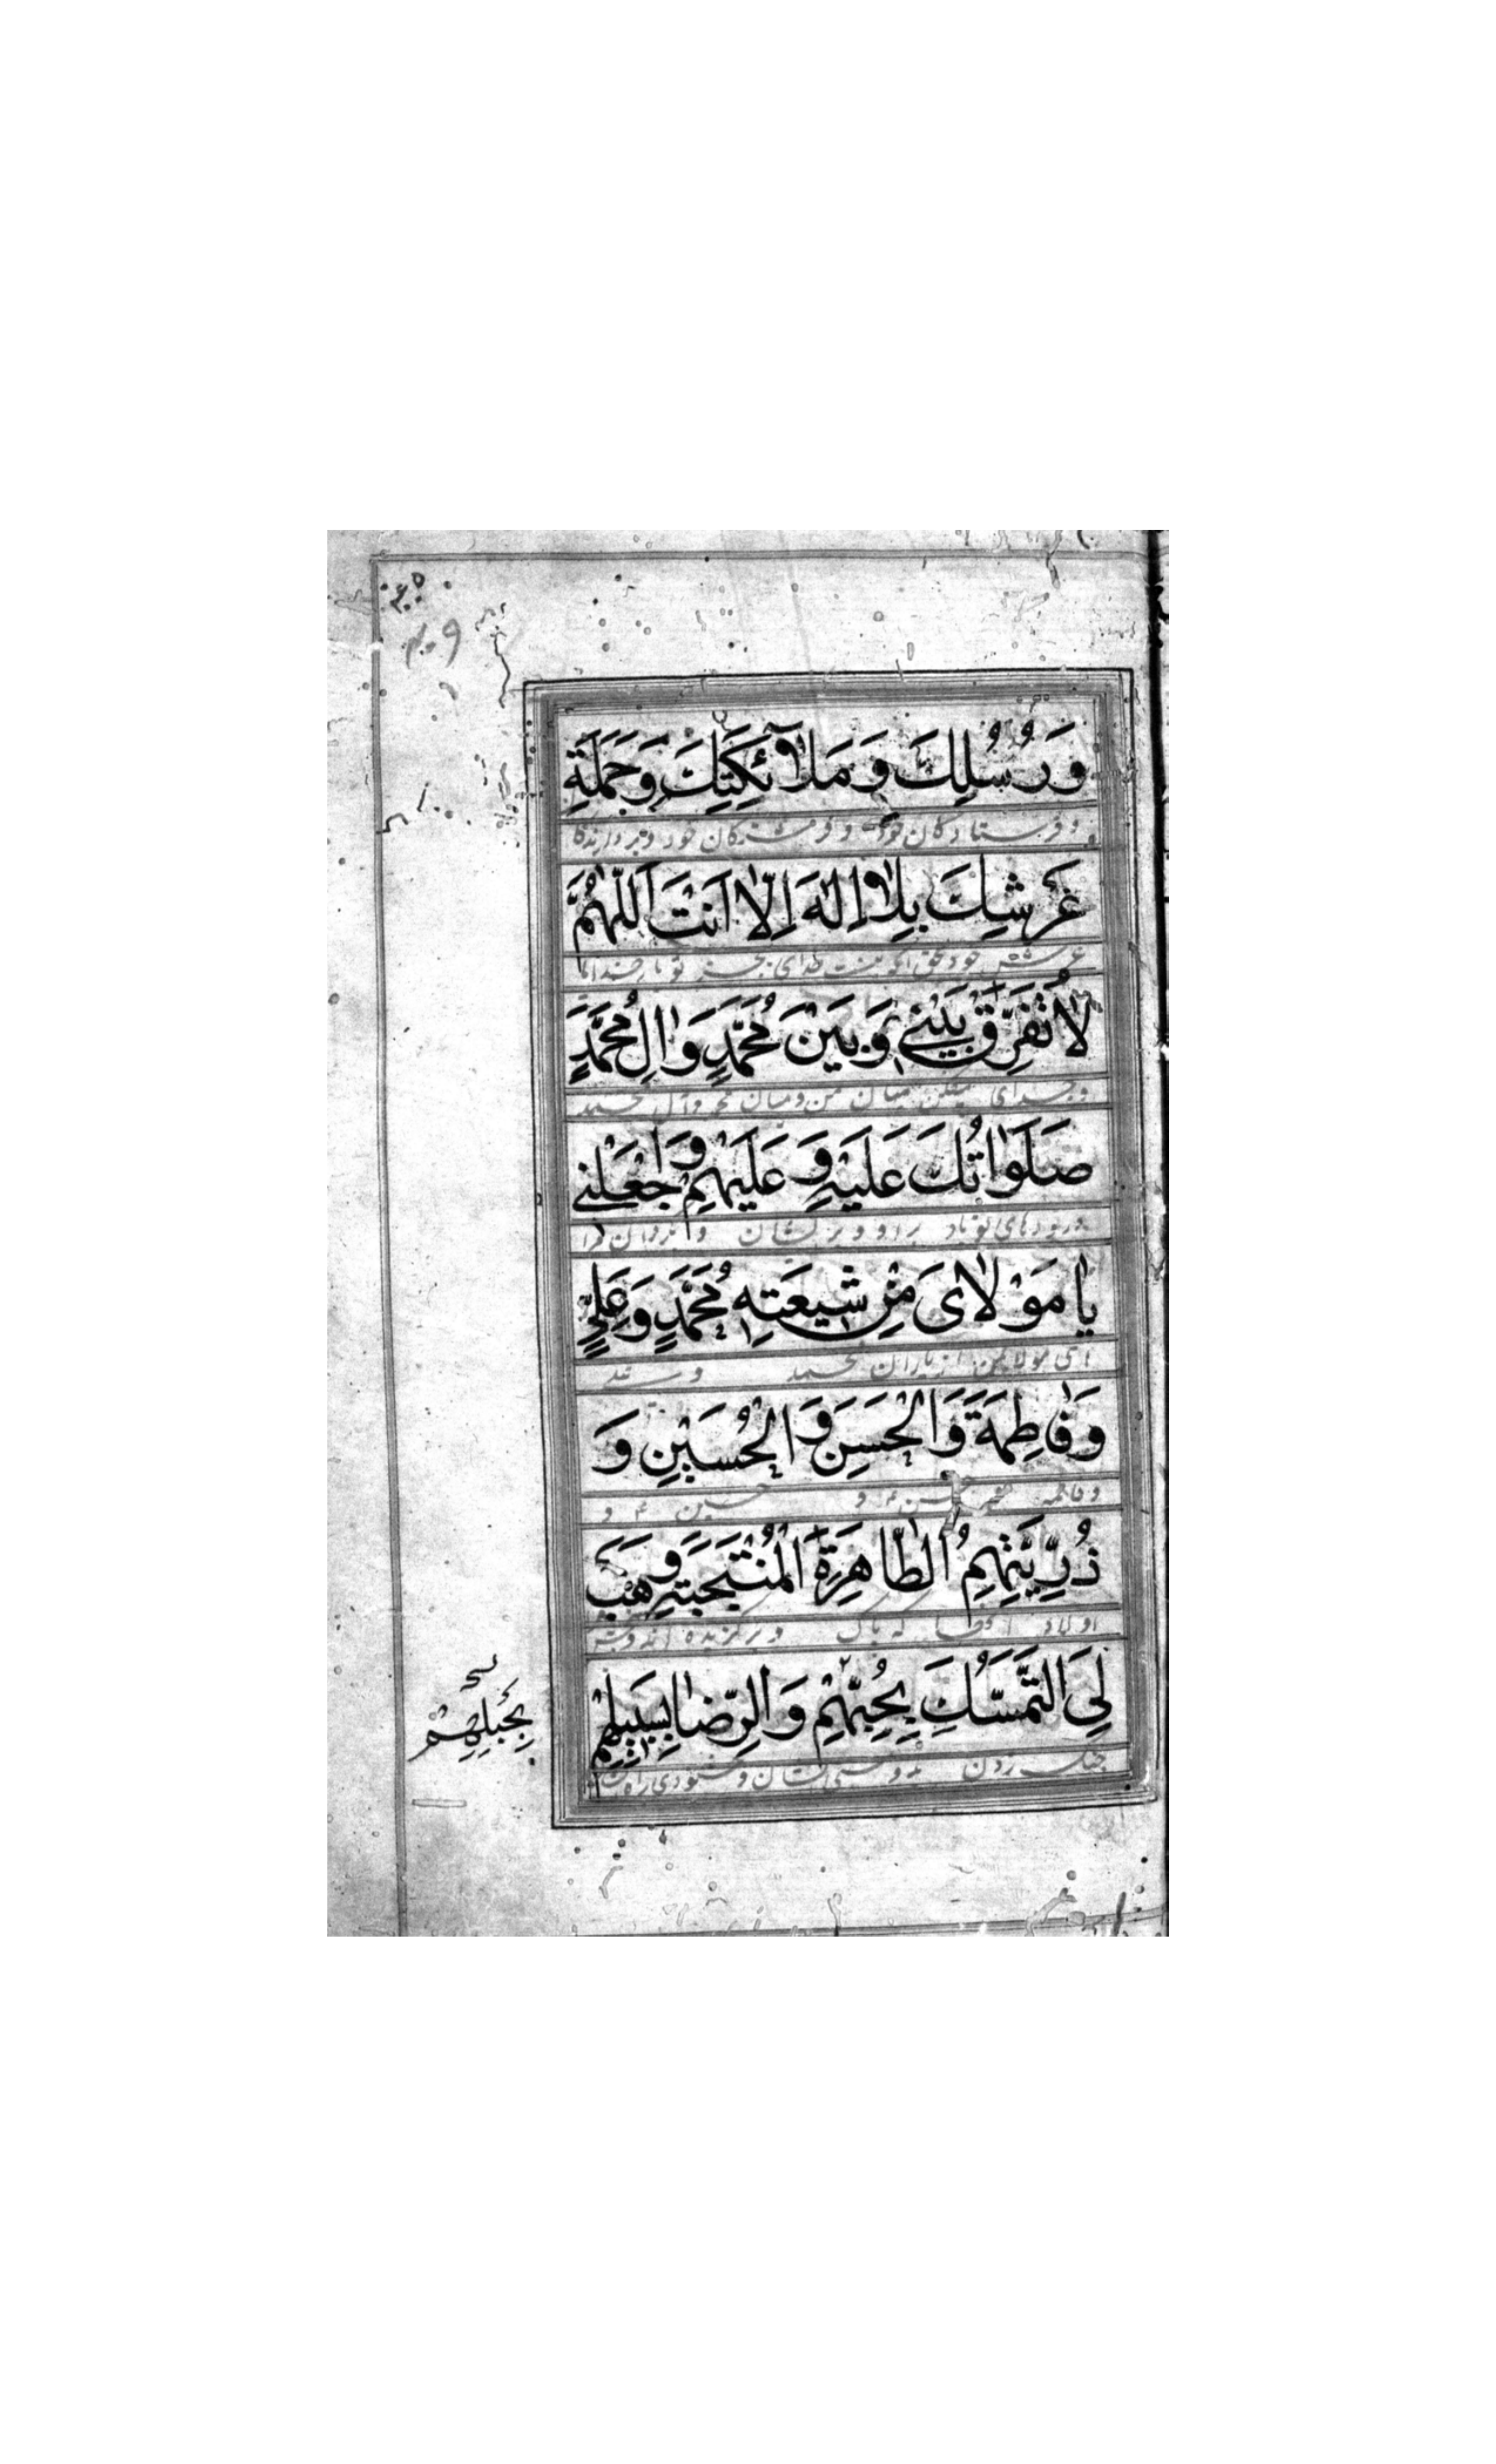 وَرُسُلِكَ وَمَلٰٓائِكَتِكَ وَحَمَلَةِ
و فرستادکان خود و فرشتکان خود و بردارندکان
عَرْشِكَ بِلٰا اِلٰهَ اِلّٰا اَنْتَ اَللّٰهُمَّ
عرش خود بحق انکه نیست خدای بجز تو بار خدایا
لٰا تُفَرِّقْ بَيْنِي وَبَيْنَ مُحَمَّدٍ وَاٰلِ مُحَمَّدٍ
و جدای میفکن میان من و میان محمد و آل محمد
صَلَوٰاتُكَ عَلَيْهِ وَعَلَيْهِمْ وَاجْعَلْنِي
درودهای تو باد بر او و بر ایشان و بکردان مرا
يٰا مَوْلٰاىَ مِنْ شِيعَتِهِ مُحَمَّدٍ وَعَلِيٍّ
ای مولای من از یاران محمد و
وَفٰاطِمَةَ وَالْحَسَنِ وَالْحُسَيْنِ وَ
و فاطمه حسن و حسین و
ذُرِّيَّتِهِمُ الطّٰاهِرَةِ الْمُنْتَجَبَةِ وَهَبْ
اولاد که پاک و برکزیده اند و
لِيَ التَّمَسُّكَ بِحُبِّهِمْ وَالرِّضٰا بِسَبِيلِهِمْ
چنک زدن بدوستی ایشان و خشنودی براه
بِحَبْلِهِمْ